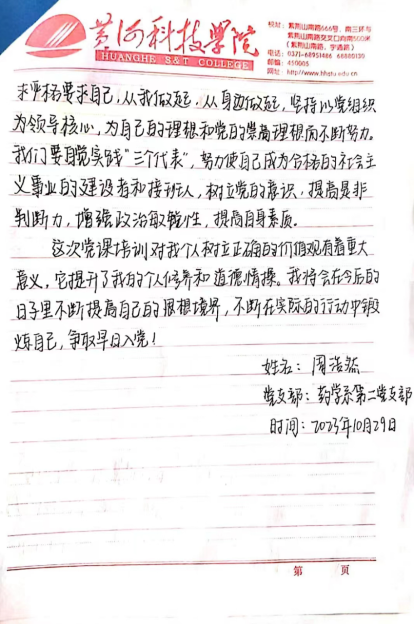 黄河科技学院
HUANGHE S&T COLLEGE
校址：紫荆山南路666号，南三环与
紫荆山南路交叉口向南500米
（紫荆山南路，宇通路）
电话：0371-68951486 66880130
邮编：450005
网址：http://www.hhstu.edu.cn
求严格要求自己，从我做起，从身边做起，坚持以党组织
为领导核心，为自己的理想和党的崇高理想而不断努力。
我们要自觉实践“三个代表”，努力使自己成为合格的社会主
义事业的建设者和接班人，树立党的意识，提高是非
判断力，增强政治敏锐性，提高自身素质。
这次党课培训对我个人树立正确的价值观有着重大
意义，它提升了我的个人修养和道德情操。我将会在今后的
日子里不断提高自己的思想境界，不断在实际的行动中锻
炼自己，争取早日入党！
姓名：周浩然
党支部：药学系第二党支部
时间：2023年10月29日
第 页